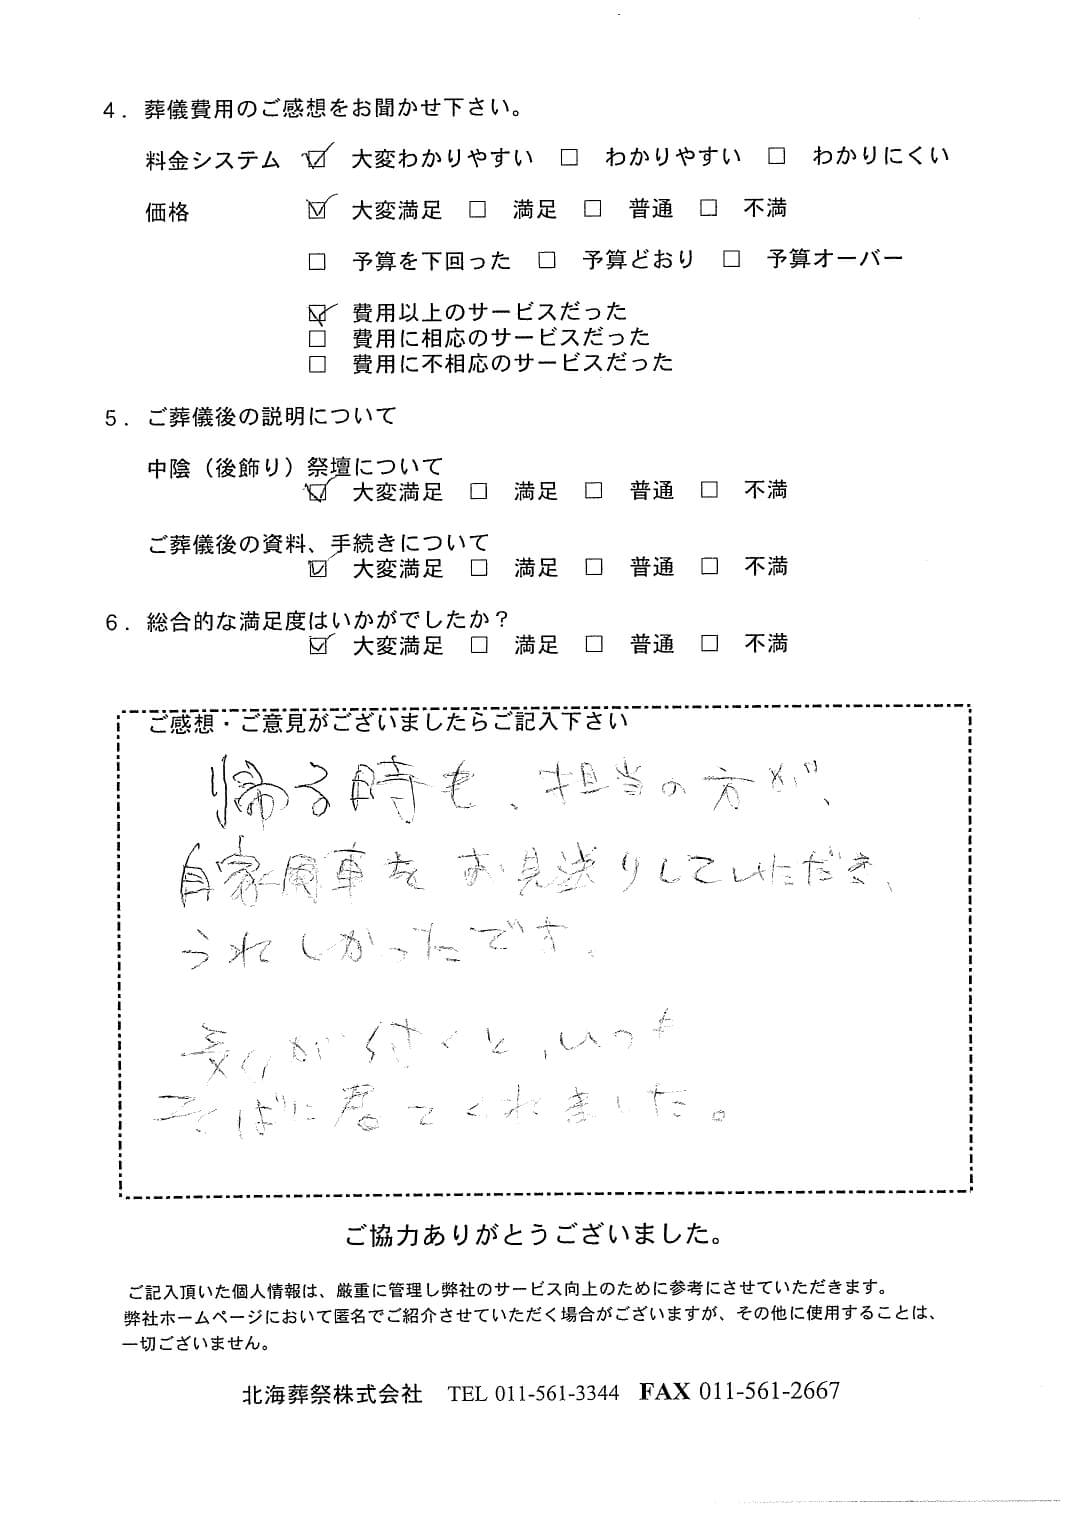 4．葬儀費用のご感想をお聞かせ下さい。
料金システム ☑ 大変わかりやすい □ わかりやすい □ わかりにくい
価格 ☑ 大変満足 □ 満足 □ 普通 □ 不満
□ 予算を下回った □ 予算どおり □ 予算オーバー
☑ 費用以上のサービスだった
□ 費用に相応のサービスだった
□ 費用に不相応のサービスだった
5．ご葬儀後の説明について
中陰（後飾り）祭壇について
☑ 大変満足 □ 満足 □ 普通 □ 不満
ご葬儀後の資料、手続きについて
☑ 大変満足 □ 満足 □ 普通 □ 不満
6．総合的な満足度はいかがでしたか？
☑ 大変満足 □ 満足 □ 普通 □ 不満
ご感想・ご意見がございましたらご記入下さい
帰る時も、担当の方が、
自家用車をお見送りしていただき、
うれしかったです。
気が付くと、いつも
そばに居てくれました。
ご協力ありがとうございました。
ご記入頂いた個人情報は、厳重に管理し弊社のサービス向上のために参考にさせていただきます。
弊社ホームページにおいて匿名でご紹介させていただく場合がございますが、その他に使用することは、
一切ございません。
北海葬祭株式会社 TEL 011-561-3344 FAX 011-561-2667